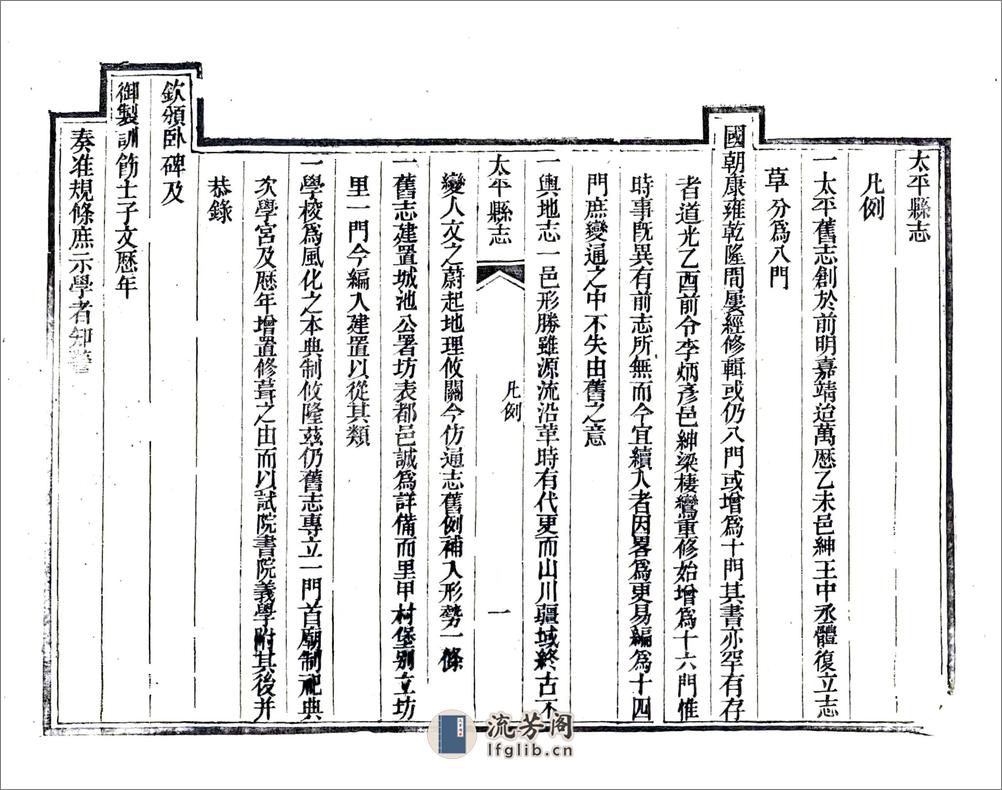 太平縣志
凡例
一太平舊志創於前明嘉靖迨萬歷乙未邑紳王中丞體復立志
草分爲八門
國朝康雍乾隆間屢經修輯或仍八門或增爲十門其書亦罕有存
者道光乙酉前令李炳彥邑紳梁棲鸞重修始增爲十六門惟
時事旣異有前志所無而今宜續入者因畧爲更易編爲十四
門庶變通之中不失由舊之意
一輿地志一邑形勝雖源流沿革時有代更而山川疆域終古不
太平縣志
凡例
一
變人文之蔚起地理攸關今仿通志舊例補入形勢一條
一舊志建置城池公署坊表都邑誠爲詳備而里甲村堡別立坊
里一門今編入建置以從其類
一學校爲風化之本典制攸隆茲仍舊志專立一門首廟制祀典
次學宮及歷年增置修葺之由而以試院書院義學附其後并
恭錄
欽頒卧碑及
御製訓飭士子文歷年
奏准規條庶示學者知
流芳阁
lfglib.cn